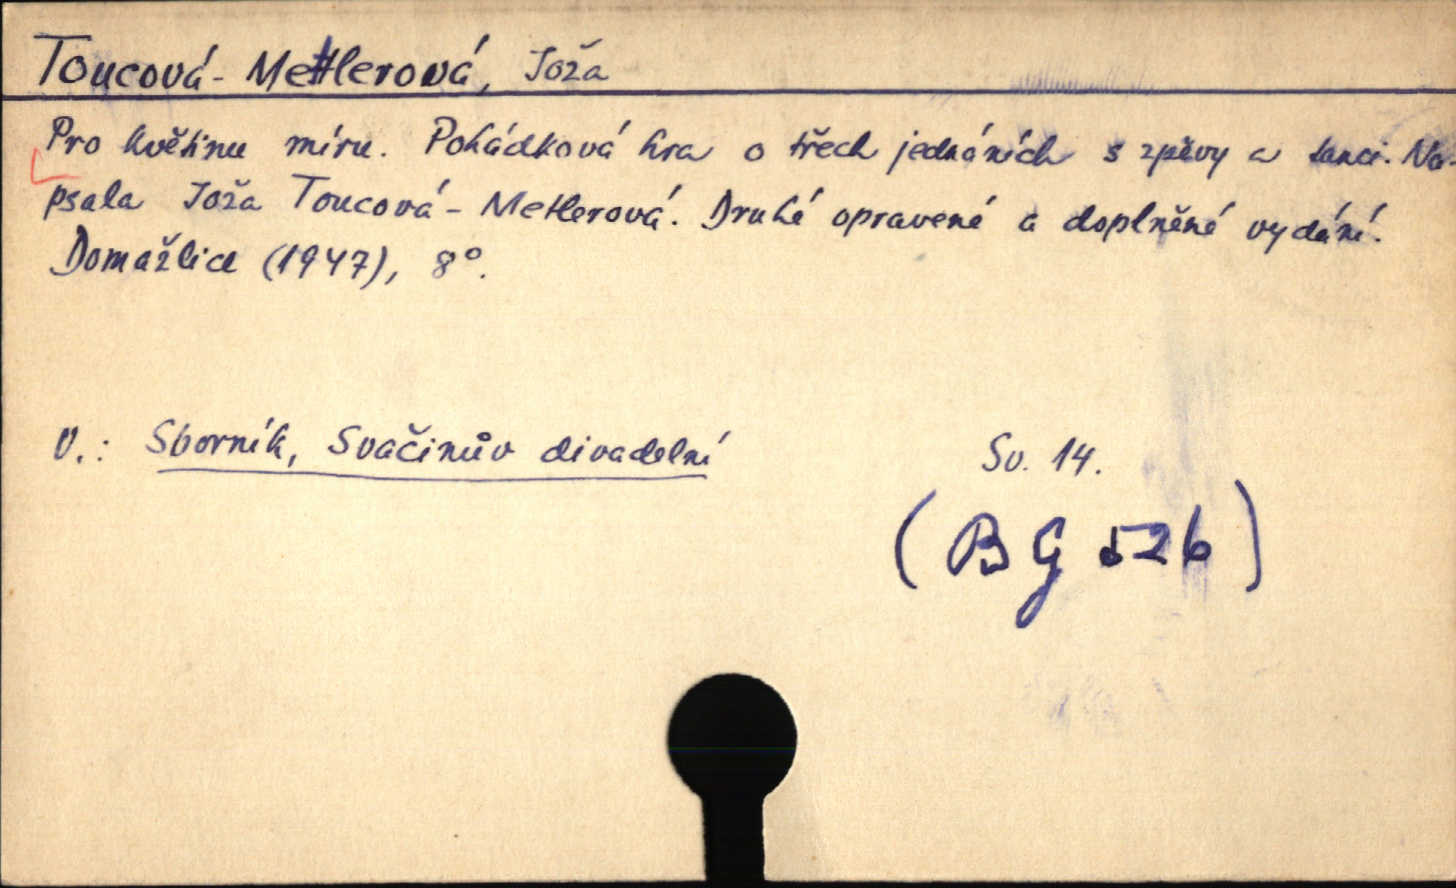 Toucová-Metlerová, Joža
Pro květinu míru. Pohádková hra o třech jednáních s zpěvy a tanci. Na-
psala Joža Toucová-Metlerová. Druhé opravené a doplněné vydání.
Domažlice (1947), 8°.
V.: Sborník, Svačinův divadelní Sv. 14.
(BG 526)